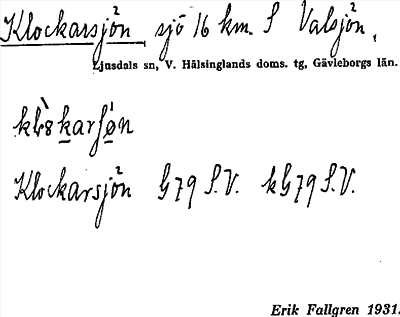 Klockarsjön, sjö 16 km. S Valsjön,
Ljusdals sn, V. Hälsinglands doms. tg, Gävleborgs län.
Klockarsjön G79 S.V. kG79 S.V.
Erik Fallgren 1931.